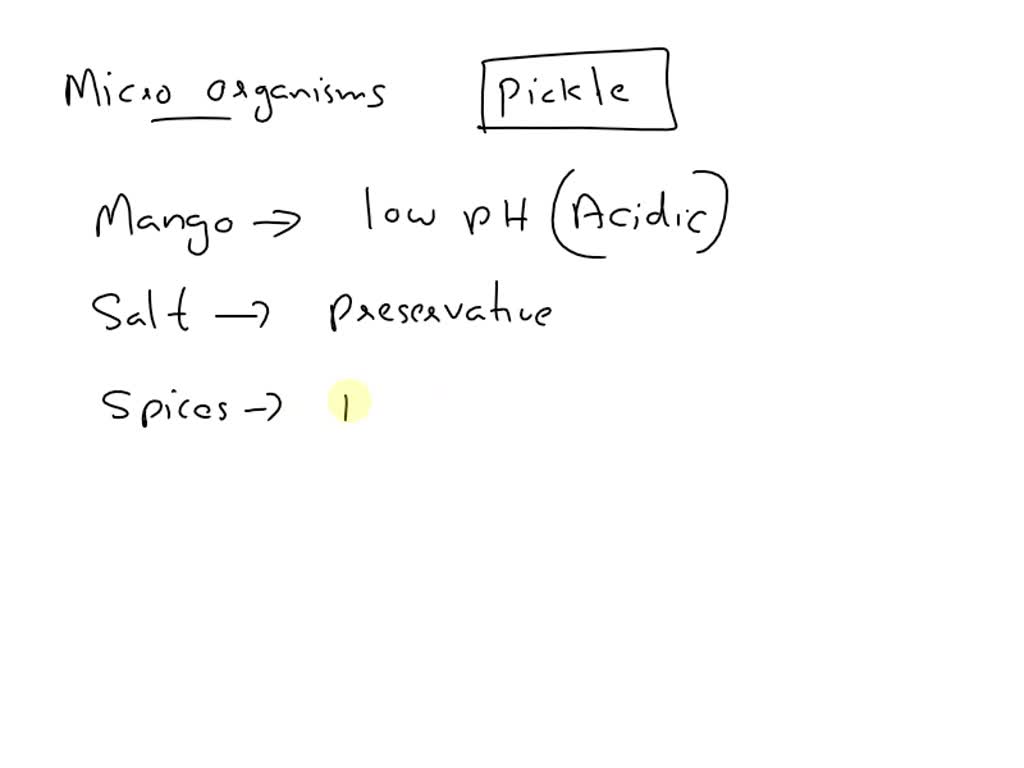 Micro organisms Pickle
Mango → low pH (Acidic)
Salt → Preservative
Spices → 1